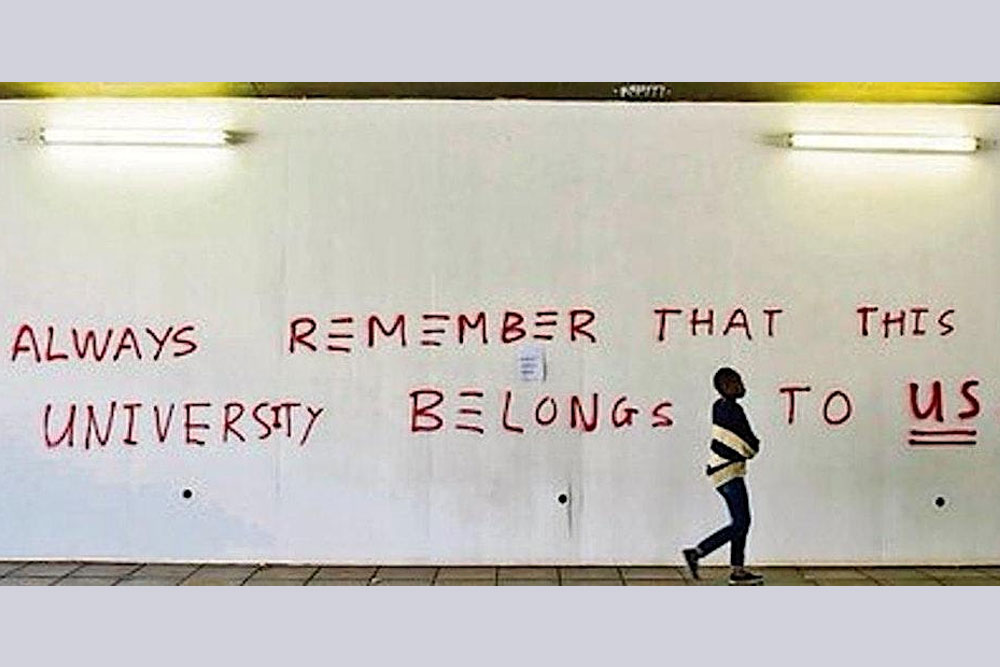 ALWAYS REMEMBER THAT THIS
UNIVERSITY BELONGS TO US